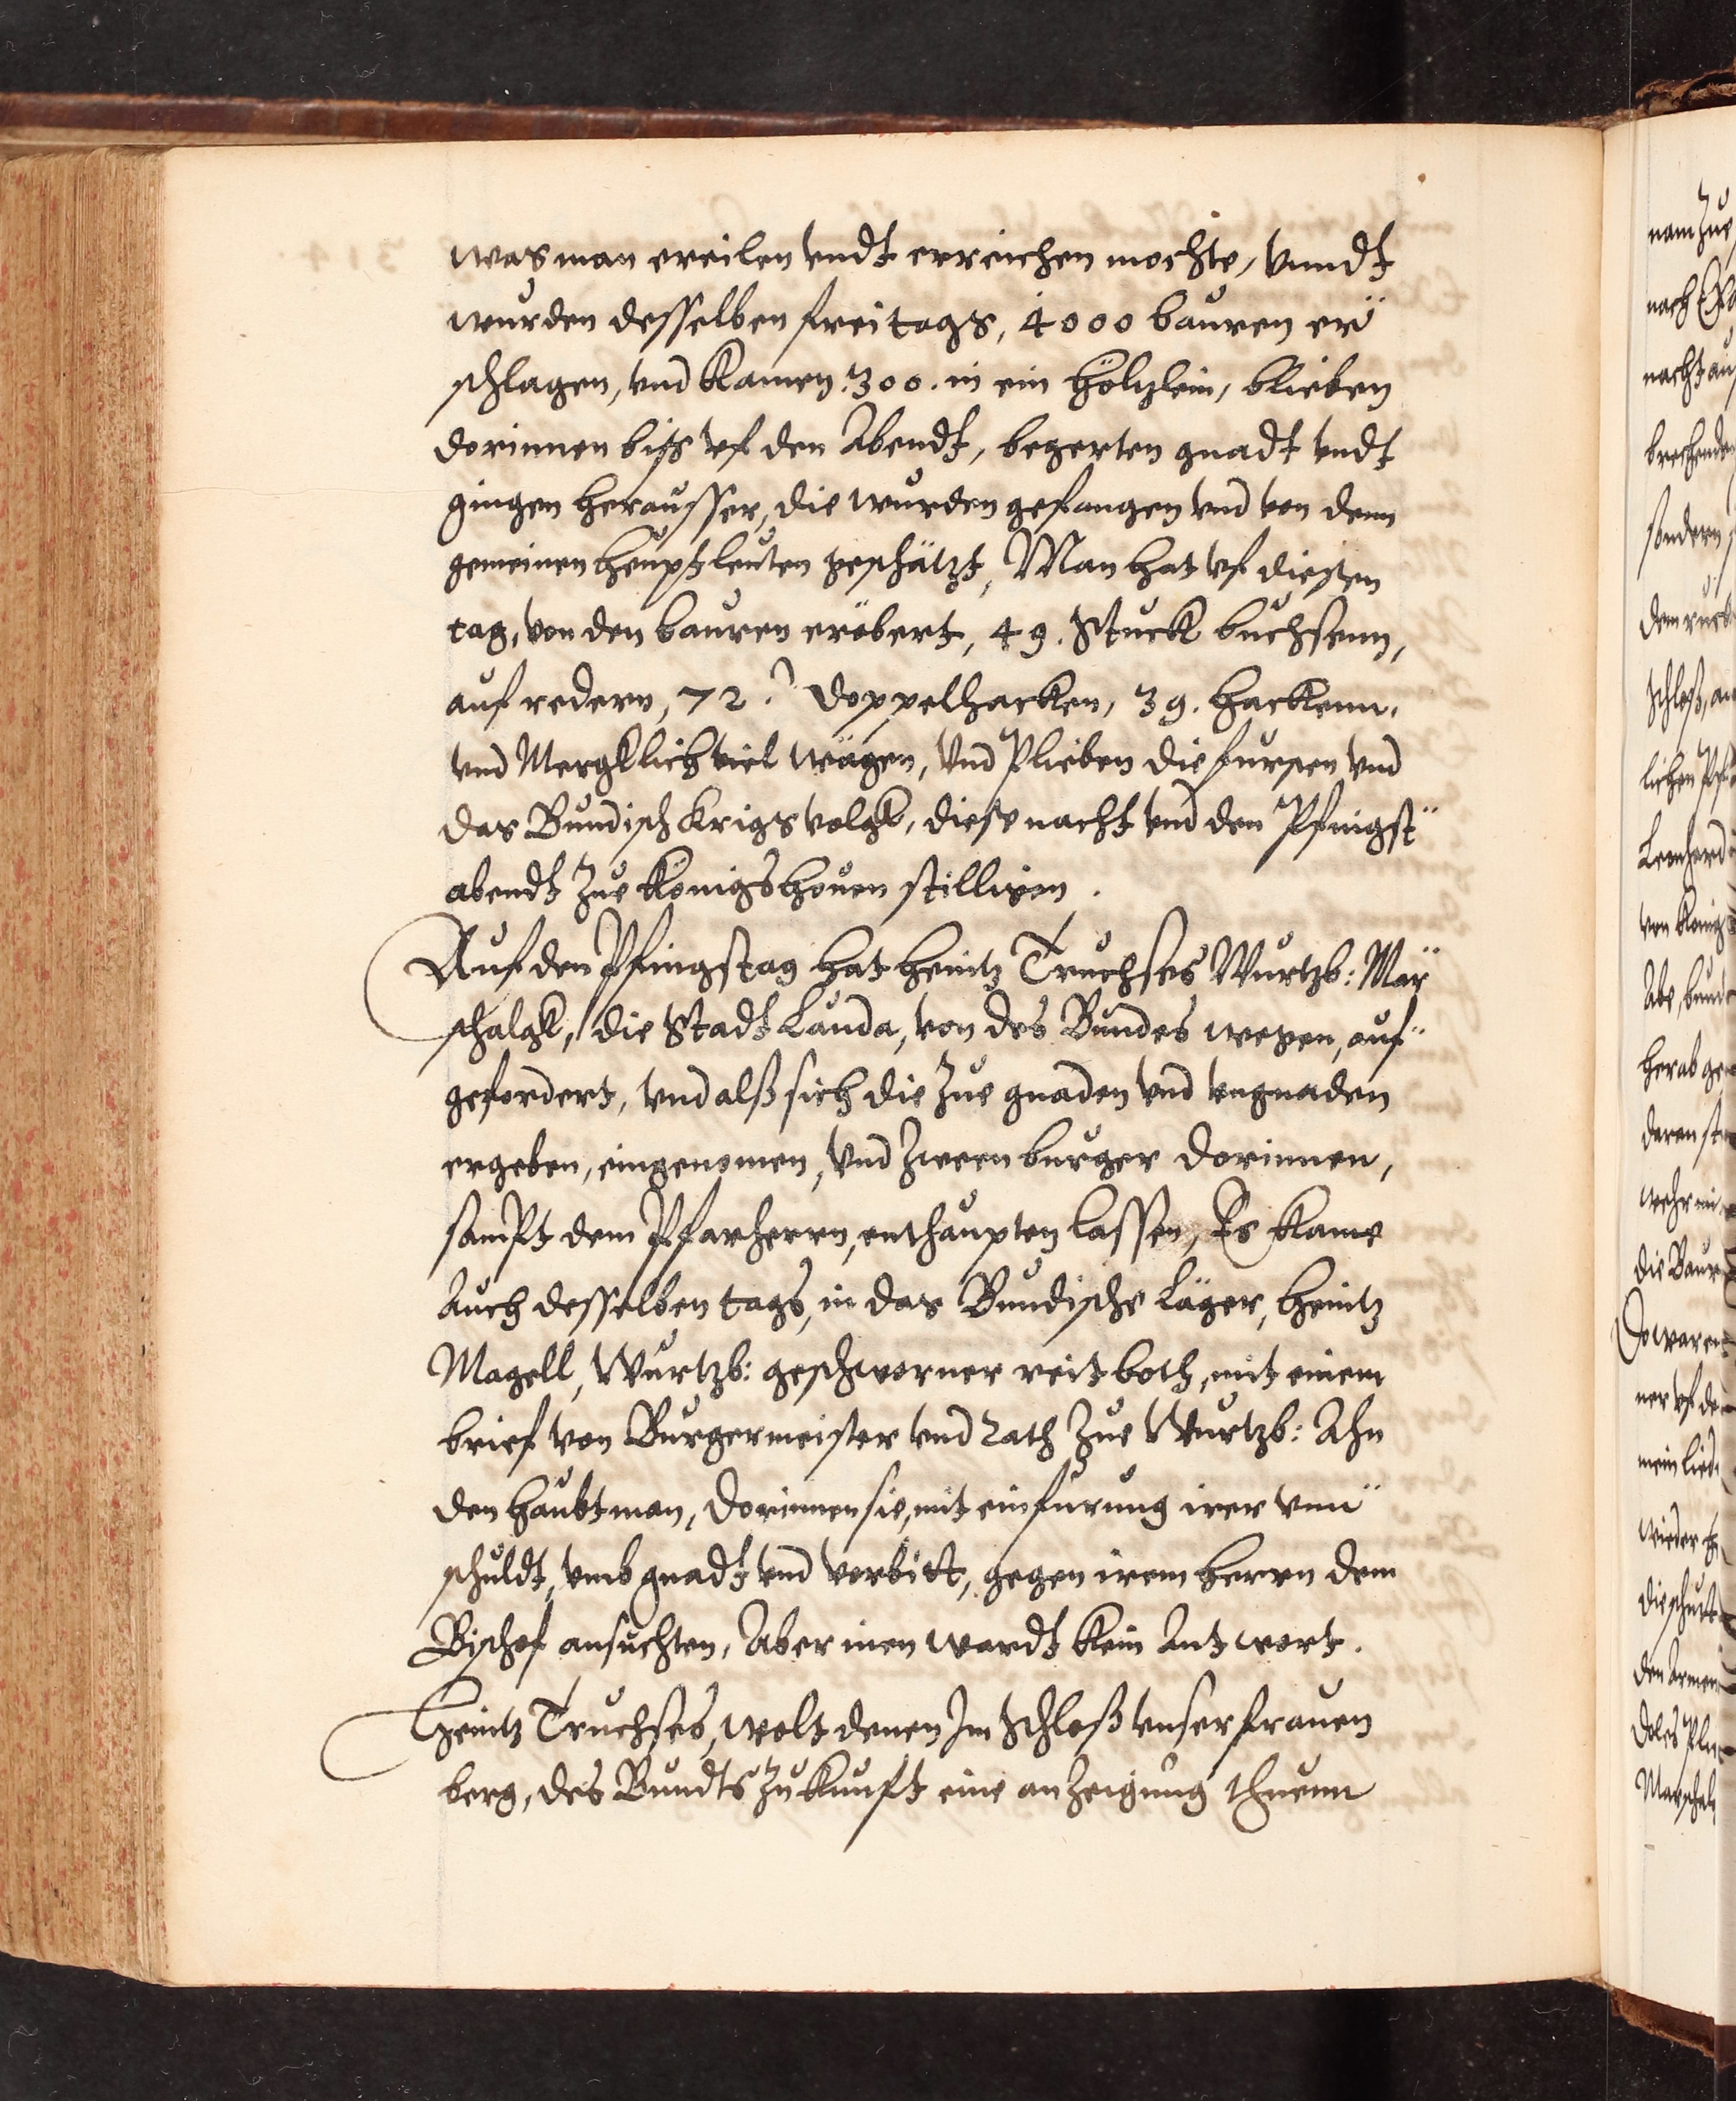 was man ereilen vndt erreichen mochte, vnndt
wurden desselben freitags, 4000 bauren er¨
schlagen, vnd kamen .300. in ein höltzlein, blieben
dorinnen biß vf den Abendt, begerten gnadt vndt
gingen herausser, die wurden gefangen vnd von denn
gemeinen heuptleuten geschätzt, Man hat vf diesen
tag, von den bauren eröbert, 49. Stuck buchsenn,
auf redern, 72. Doppelhacken, 39. hackenn,
vnd Mergklich viel wägen, Vnd Plieben die fursten vnd
das Bundisch krigsvolgk, diese nacht vnd den Pfingst¨
abendt Zue Königshouen stilligen.
Auf den Pfingstag hat heintz Truchses Wurtzb: Mar¨
schalgk, die Stadt Lauda, von des Bundes wegen, auf¨
gefordert, vnd alß sich die Zue gnaden vnd vngnaden
ergeben, eingenomen, vnd Zween burger dorinnen,
sampt dem Pfarherrn, enthaupten lassen, Es kame
Auch desselben tags, in das Bundische Läger, heintz
Magell, Wurtzb: geschworner reit both, mit einem
brief von Burgermeister vnd Rath Zue Wurtzb: Ahn
den haubtman, dorinnen sie, mit einfurung irer vnn¨
schuldt, vmb gnadt vnd vorbitt, gegen irem herrn dem
Bischof ansuchten, Aber inen wardt kein Antwort.
Heintz Truchses, wolt denen Im Schloß vnser frauen
berg, des Bundts Zukunft eine anZeigung thuenn